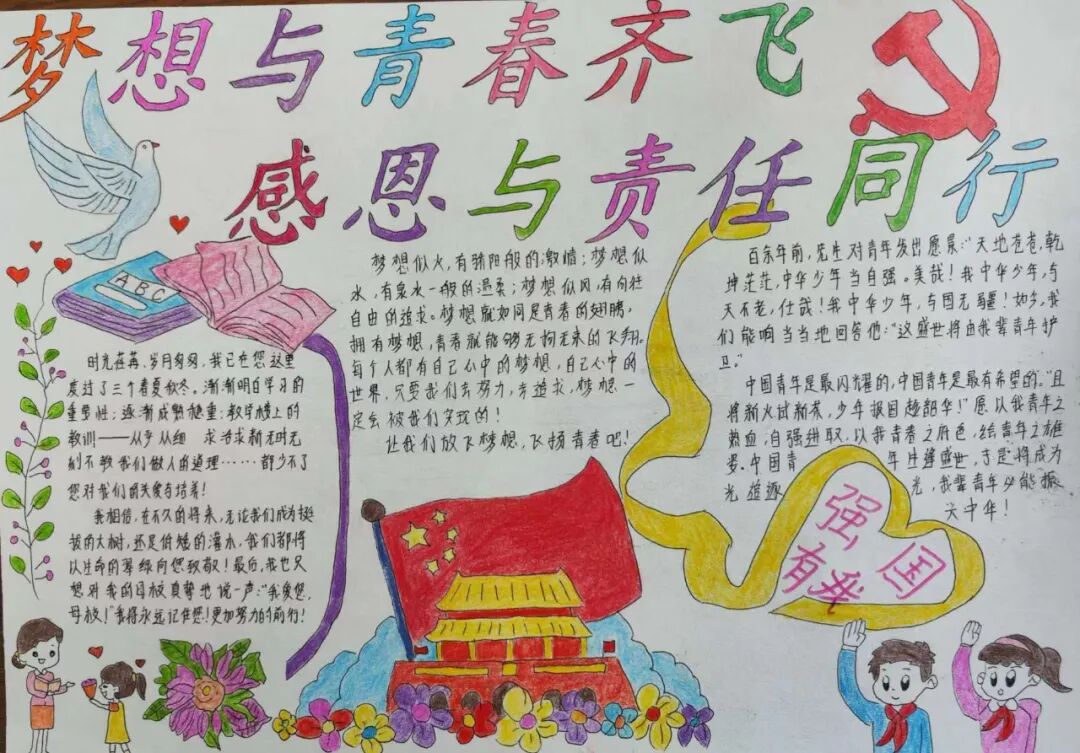 梦想与青春齐飞
感恩与责任同行
ABC
时光荏苒,岁月匆匆,我已在您这里
度过了三个春夏秋冬。渐渐明白学习的
重要性;逐渐成熟稳重;教学楼上的
教训——从步从细 求活求新无时无
刻不教我们做人的道理……都少不了
您对我们的关爱与培养!
我相信,在不久的将来,无论我们成为挺
拔的大树,还是低矮的灌木,我们都将
以生命的翠绿向您致敬!最后,我也只
想对我的母校真挚地说一声:“我爱您,
母校!”我将永远记住您!更加努力的前行!
梦想似火,有骄阳般的激情;梦想似
水,有泉水一般的温柔;梦想似风,有向往
自由的追求。梦想就如同是青春的翅膀,
拥有梦想,青春就能够无拘无束的飞翔。
每个人都有自己心中的梦想,自己心中的
世界,只要我们去努力,去追求,梦想一
定会被我们实现的!
让我们放飞梦想,飞扬青春吧!
百余年前,先生对青年发出愿景:“天地苍苍,乾
坤茫茫,中华少年当自强。美哉!我中华少年,与
天不老,壮哉!我中华少年,与国无疆!如今,我
们能响当当地回答他:“这盛世将由我辈青年护
卫。”
中国青年是最闪耀的,中国青年是最有希望的。“且
将新火试新茶,少年报国趁韶华!”愿以我青年之
热血,自强进取,以我青春之底色,绘青年之雄
姿。中国青 年生逢盛世,于是将成为
光 追逐 光,我辈青年必能振
大中华!
强国
有我